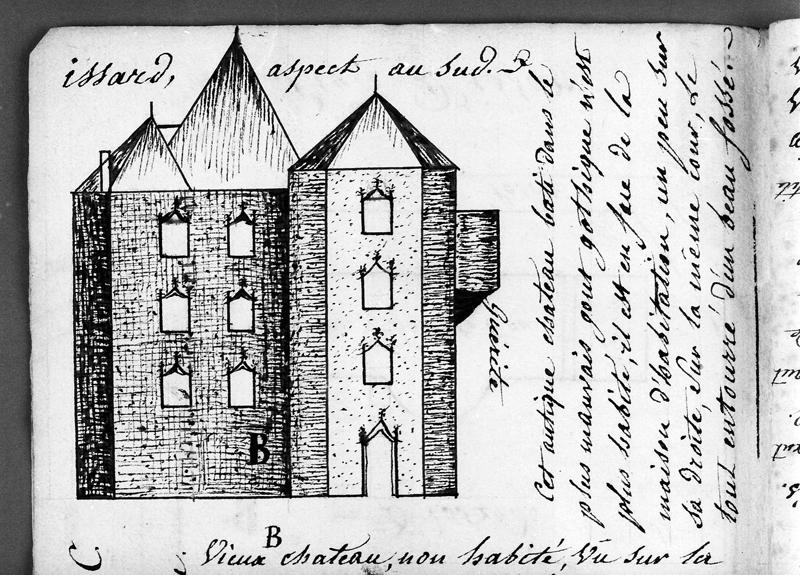 issard, aspect au sud.
Cet antique chateau bati dans le
plus mauvais gout gothique n'est
plus habité, il est en face de la
maison d'habitation, un peu sur
sa droite, sur la même cour, le
tout entourré d'un beau fossé.
Guérite
B
B
Vieux chateau, non habité, Vu sur la